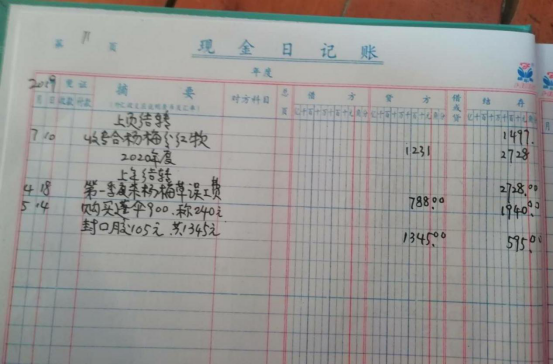 第 页
现金日记账
年度
2019 凭证 摘要 对方科目 总页 借方 贷方 借或贷 结存
月 日 收款 付款
上页结转 1497.
7 10 收专合杨梅分红款 1231 2728
2020年度
上年结转 2728.00
4 18 杨梅草误工费 788.00 1940.00
5 04 购买遮伞900.称240元
封口胶105元.共1345元 1345.00 595.00